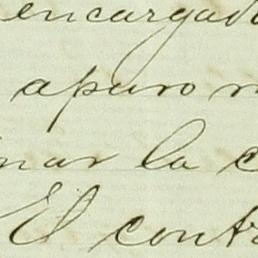 encargado
apuro n
nar la c
El contr